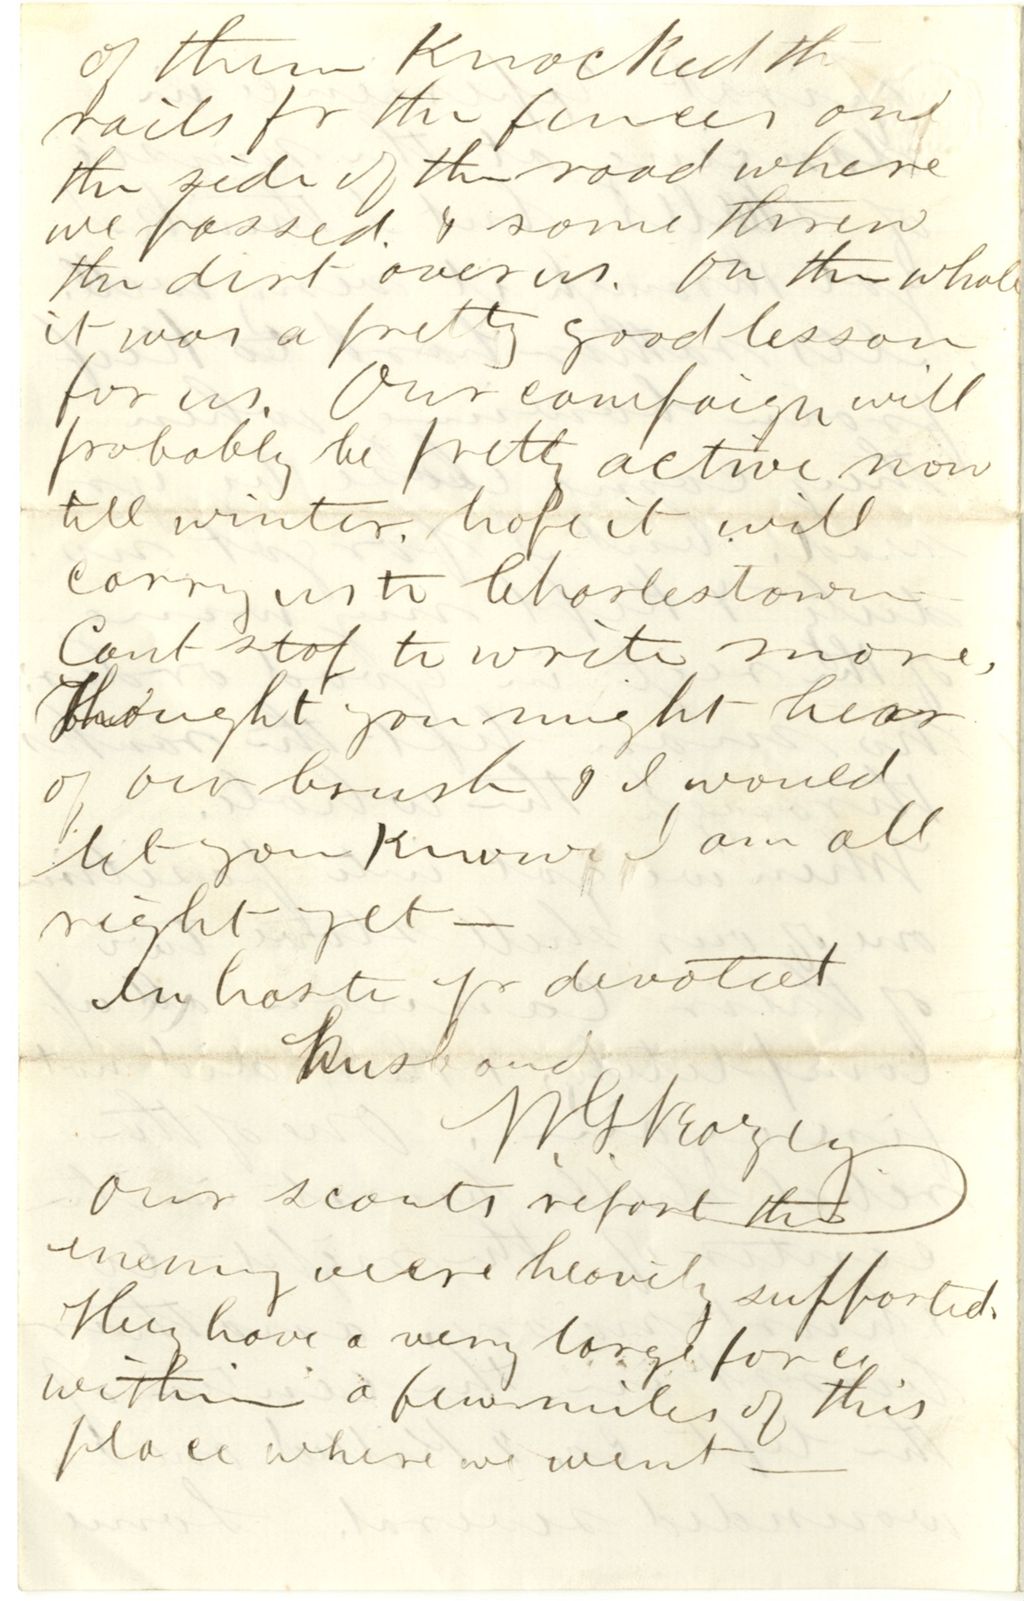 of them knocked th
rails fr the fences and
the side of the road where
we passed. & some threw
the dirt over us. On the whole
it was a pretty good lesson
for us. Our campaign will
probably be pretty active now
till winter. hope it will
carry us to Charlestown
Cant stop to write more,
Thought you might hear
of our brush & I would
let you know I am all
right yet —
In haste yr devotet
Husband
W G Veazey
Our scouts report the
enemy were heavily supported.
They have a very large force
within a few miles of this
place where we went —